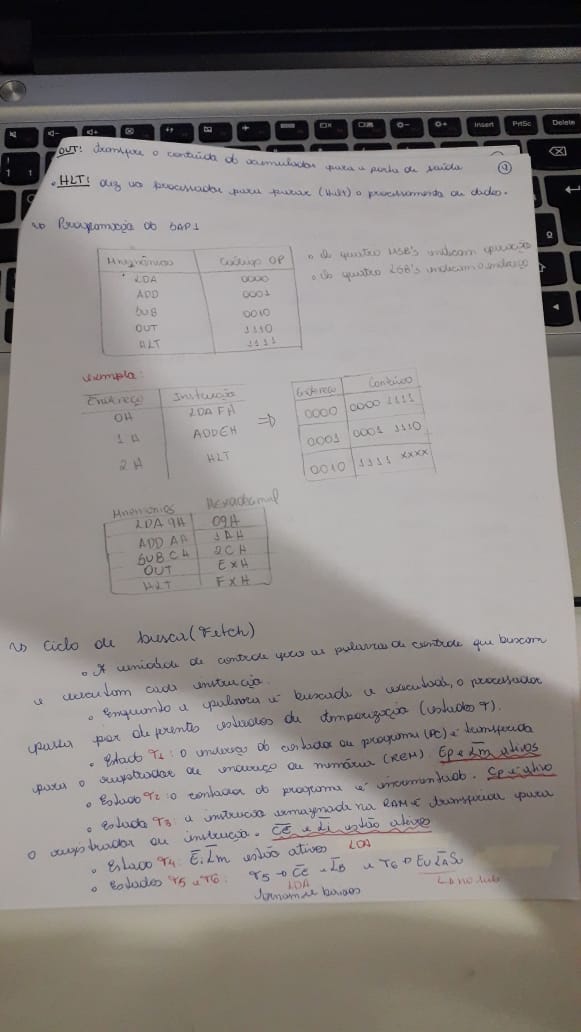 Insert PrtSc Delete
OUT: transfere o conteúdo do acumulador para a porta de saída
4
• HLT: diz ao processador para parar (Halt) o processamento de dados.
Programação do SAP1
Mnemônico Código OP
LDA 0000
ADD 0001
SUB 0010
OUT 1110
HLT 1111
• Os quatro MSB's indicam operação
• Os quatro LSB's indicam o endereço
exemplo:
Endereço Instrução
0H LDA FH
1H ADD EH
2H HLT
⇒
Endereço Conteúdo
0000 0000 1111
0001 0001 1110
0010 1111 xxxx
Mnemonios Hexadecimal
LDA 9H 09H
ADD AH 1AH
SUB CH 2CH
OUT EXH
HLT FXH
Ciclo de busca (Fetch)
• A unidade de controle gera as palavras de controle que buscam
e executam cada instrução.
• Enquanto a palavra é buscada e executada, o processador
passa por diferentes estados de temporização (estados T).
• Estado T1: o endereço do contador de programa (PC) é transferido
para o registrador de endereço de memória (REM). Ep e L̄m ativos
• Estado T2: o contador de programa é incrementado. Cp é ativo
• Estado T3: a instrução armazenada na RAM é transferida para
o registrador de instrução. C̄Ē e L̄i estão ativos
• Estado T4: Ēi L̄m estão ativos LDA
• Estados T5 e T6: T5 → C̄Ē e L̄B e T6 → Eu L̄A Su
LDA
tornam-se baixos